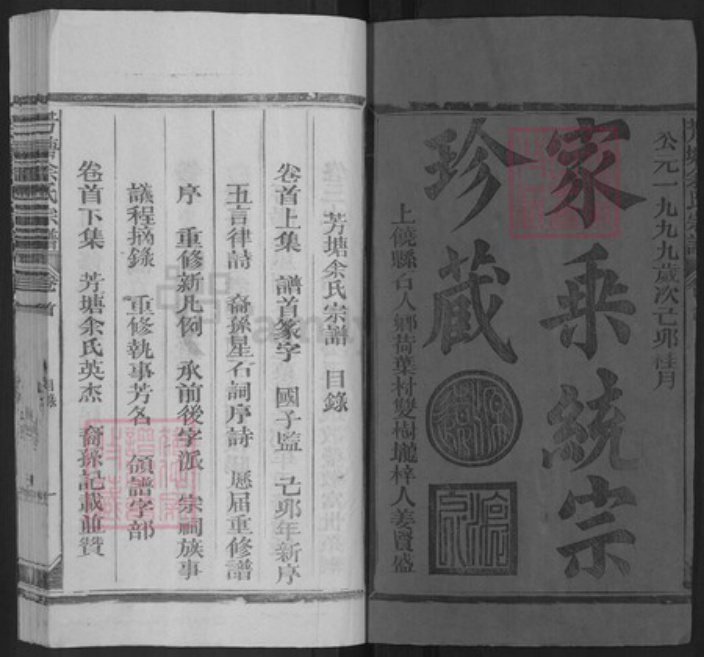 公元一九九九歲次己卯桂月
家乘統宗
珍藏
上饒縣石人鄉荷葉村雙樹壠梓人姜賢盛
芳塘余氏宗譜 目錄
卷首上集 譜首篆字 國子監 己卯年新序
五言律詩 裔孫星石詞序詩 歷届重修譜
序 重修新凡例 承前後字派 宗祠族事
議程摘錄 重修執事芳名 領譜字部
卷首下集 芳塘余氏英杰 裔孫記載並贊
芳塘余氏宗譜 卷首 目錄 一